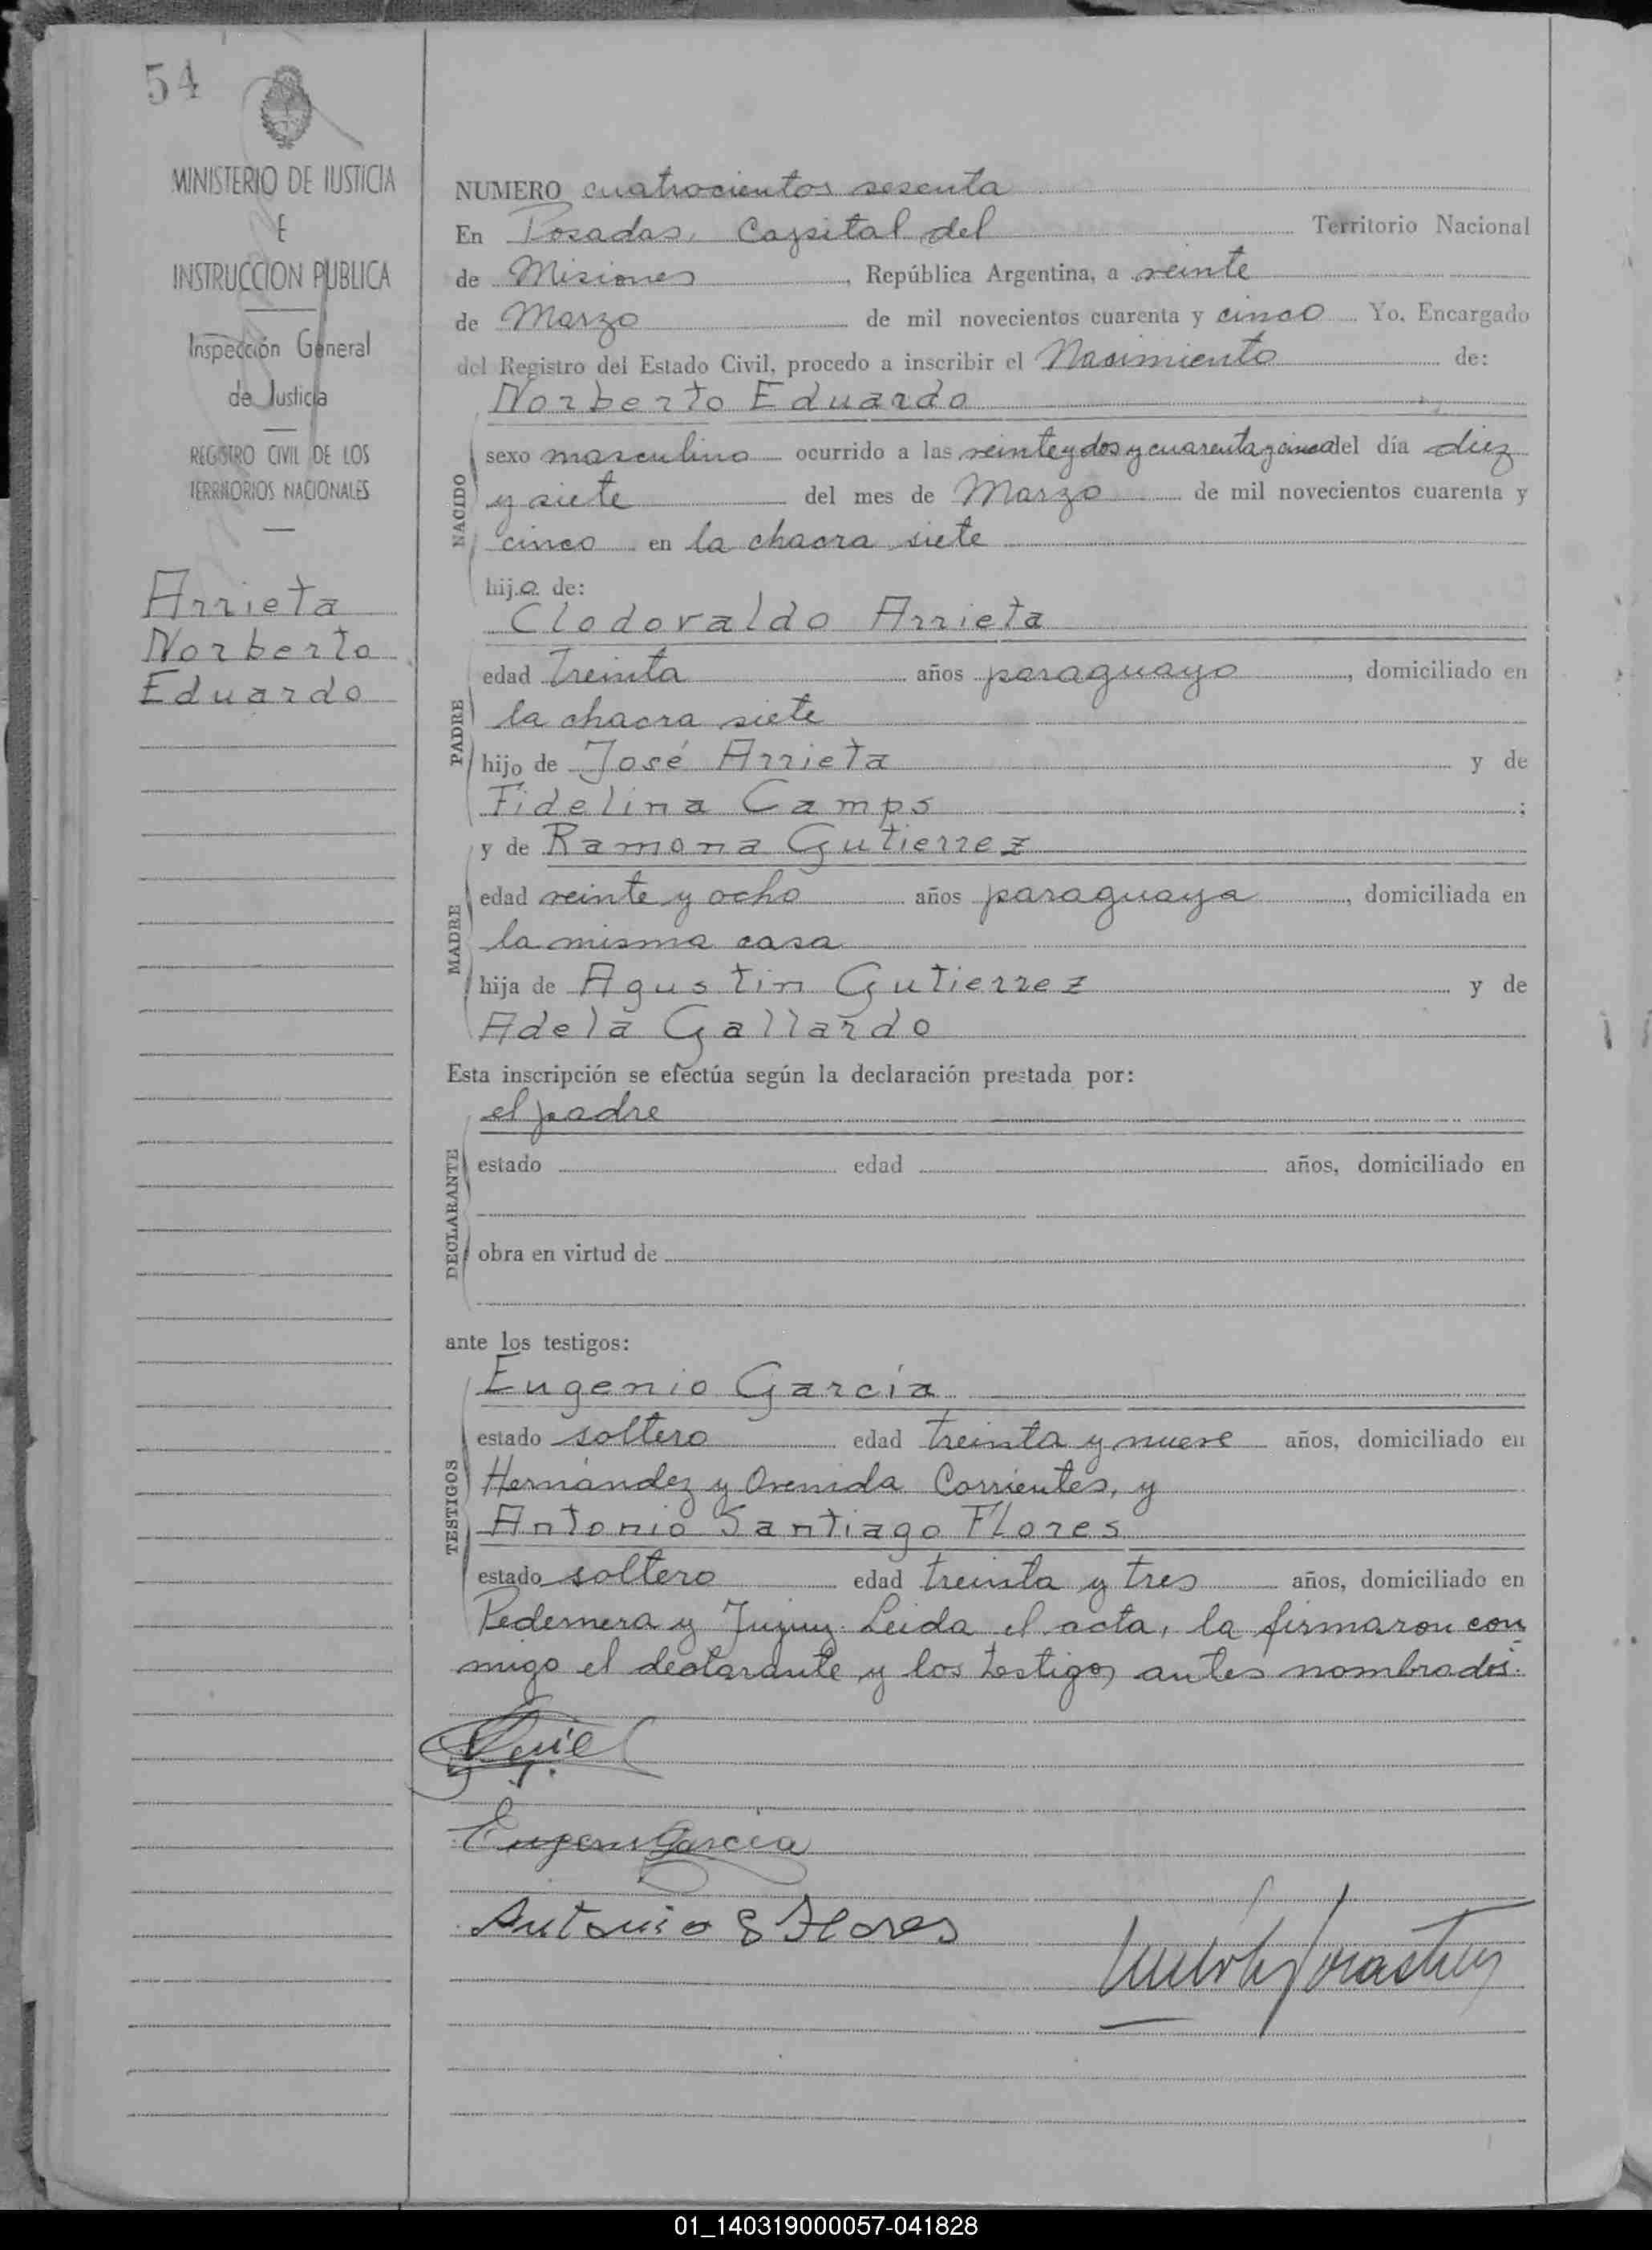 54
MINISTERIO DE JUSTICIA
E
INSTRUCCION PUBLICA
Inspección General
de Justicia
REGISTRO CIVIL DE LOS
TERRITORIOS NACIONALES
Arrieta
Norberto
Eduardo
NUMERO cuatrocientos sesenta
En Posadas, Capital del Territorio Nacional
de Misiones, República Argentina, a veinte
de Marzo de mil novecientos cuarenta y cinco Yo, Encargado
del Registro del Estado Civil, procedo a inscribir el Nacimiento de:
Norberto Eduardo
NACIDO
sexo masculino ocurrido a las veinte y dos y cuarenta y cinco del día diez
y siete del mes de Marzo de mil novecientos cuarenta y
cinco en la chacra siete
hijo de:
Clodovaldo Arrieta
PADRE
edad Treinta años paraguayo, domiciliado en
la chacra siete
hijo de José Arrieta y de
Fidelina Camps;
y de Ramona Gutierrez
MADRE
edad veinte y ocho años paraguaya, domiciliada en
la misma casa
hija de Agustin Gutierrez y de
Adela Gallardo
Esta inscripción se efectúa según la declaración prestada por:
el padre
DECLARANTE
estado edad años, domiciliado en
obra en virtud de
ante los testigos:
Eugenio García
TESTIGOS
estado soltero edad treinta y nueve años, domiciliado en
Hernández y Avenida Corrientes, y
Antonio Santiago Flores
estado soltero edad treinta y tres años, domiciliado en
Pedernera y Jujuy. Leida el acta, la firmaron con
migo el declarante y los testigos antes nombrados.
Eugenio Garcia
Antonio S Flores
01_140319000057-041828